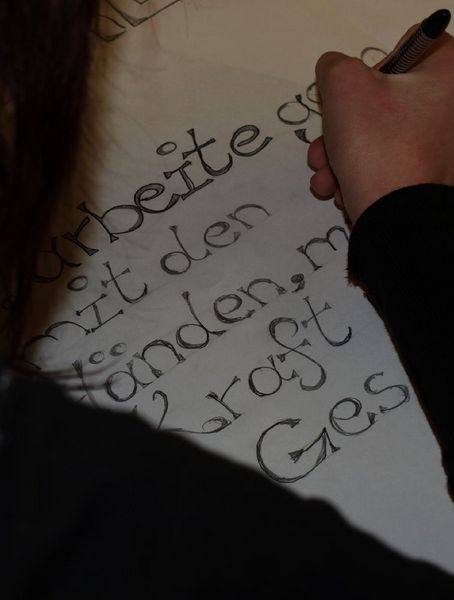 arbeite
mit den
Händen, m
Kraft
Ges